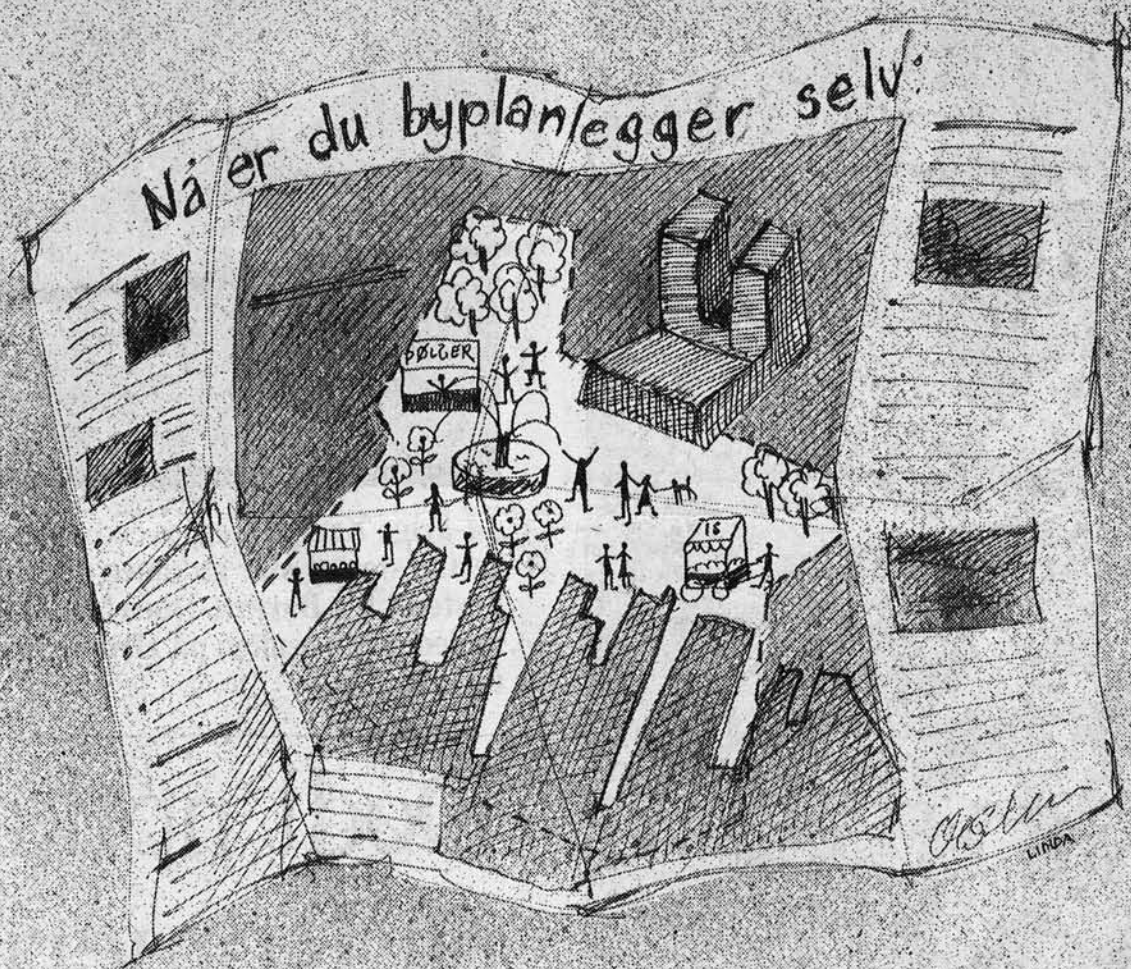 Nå er du byplanlegger selv:
PØLSER
IS
LINDA